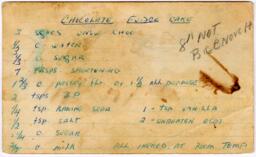 CHOCOLATE FUDGE CAKE
3 UNSW CHOC
8" NOT
BIG ENOUGH
WATER
SUGAR
7 TBSPS SHORTENING
1 3/4 C pastry flr or 1 1/2 ALL purpose
2 tsps B.P
1/4 tsp BAKING SODA 1 - tsp VANILLA
1/2 tsp SALT 2 - UNBEATEN EGGS
C SUGAR
C milk ALL INGRED. AT ROOM TEMP.